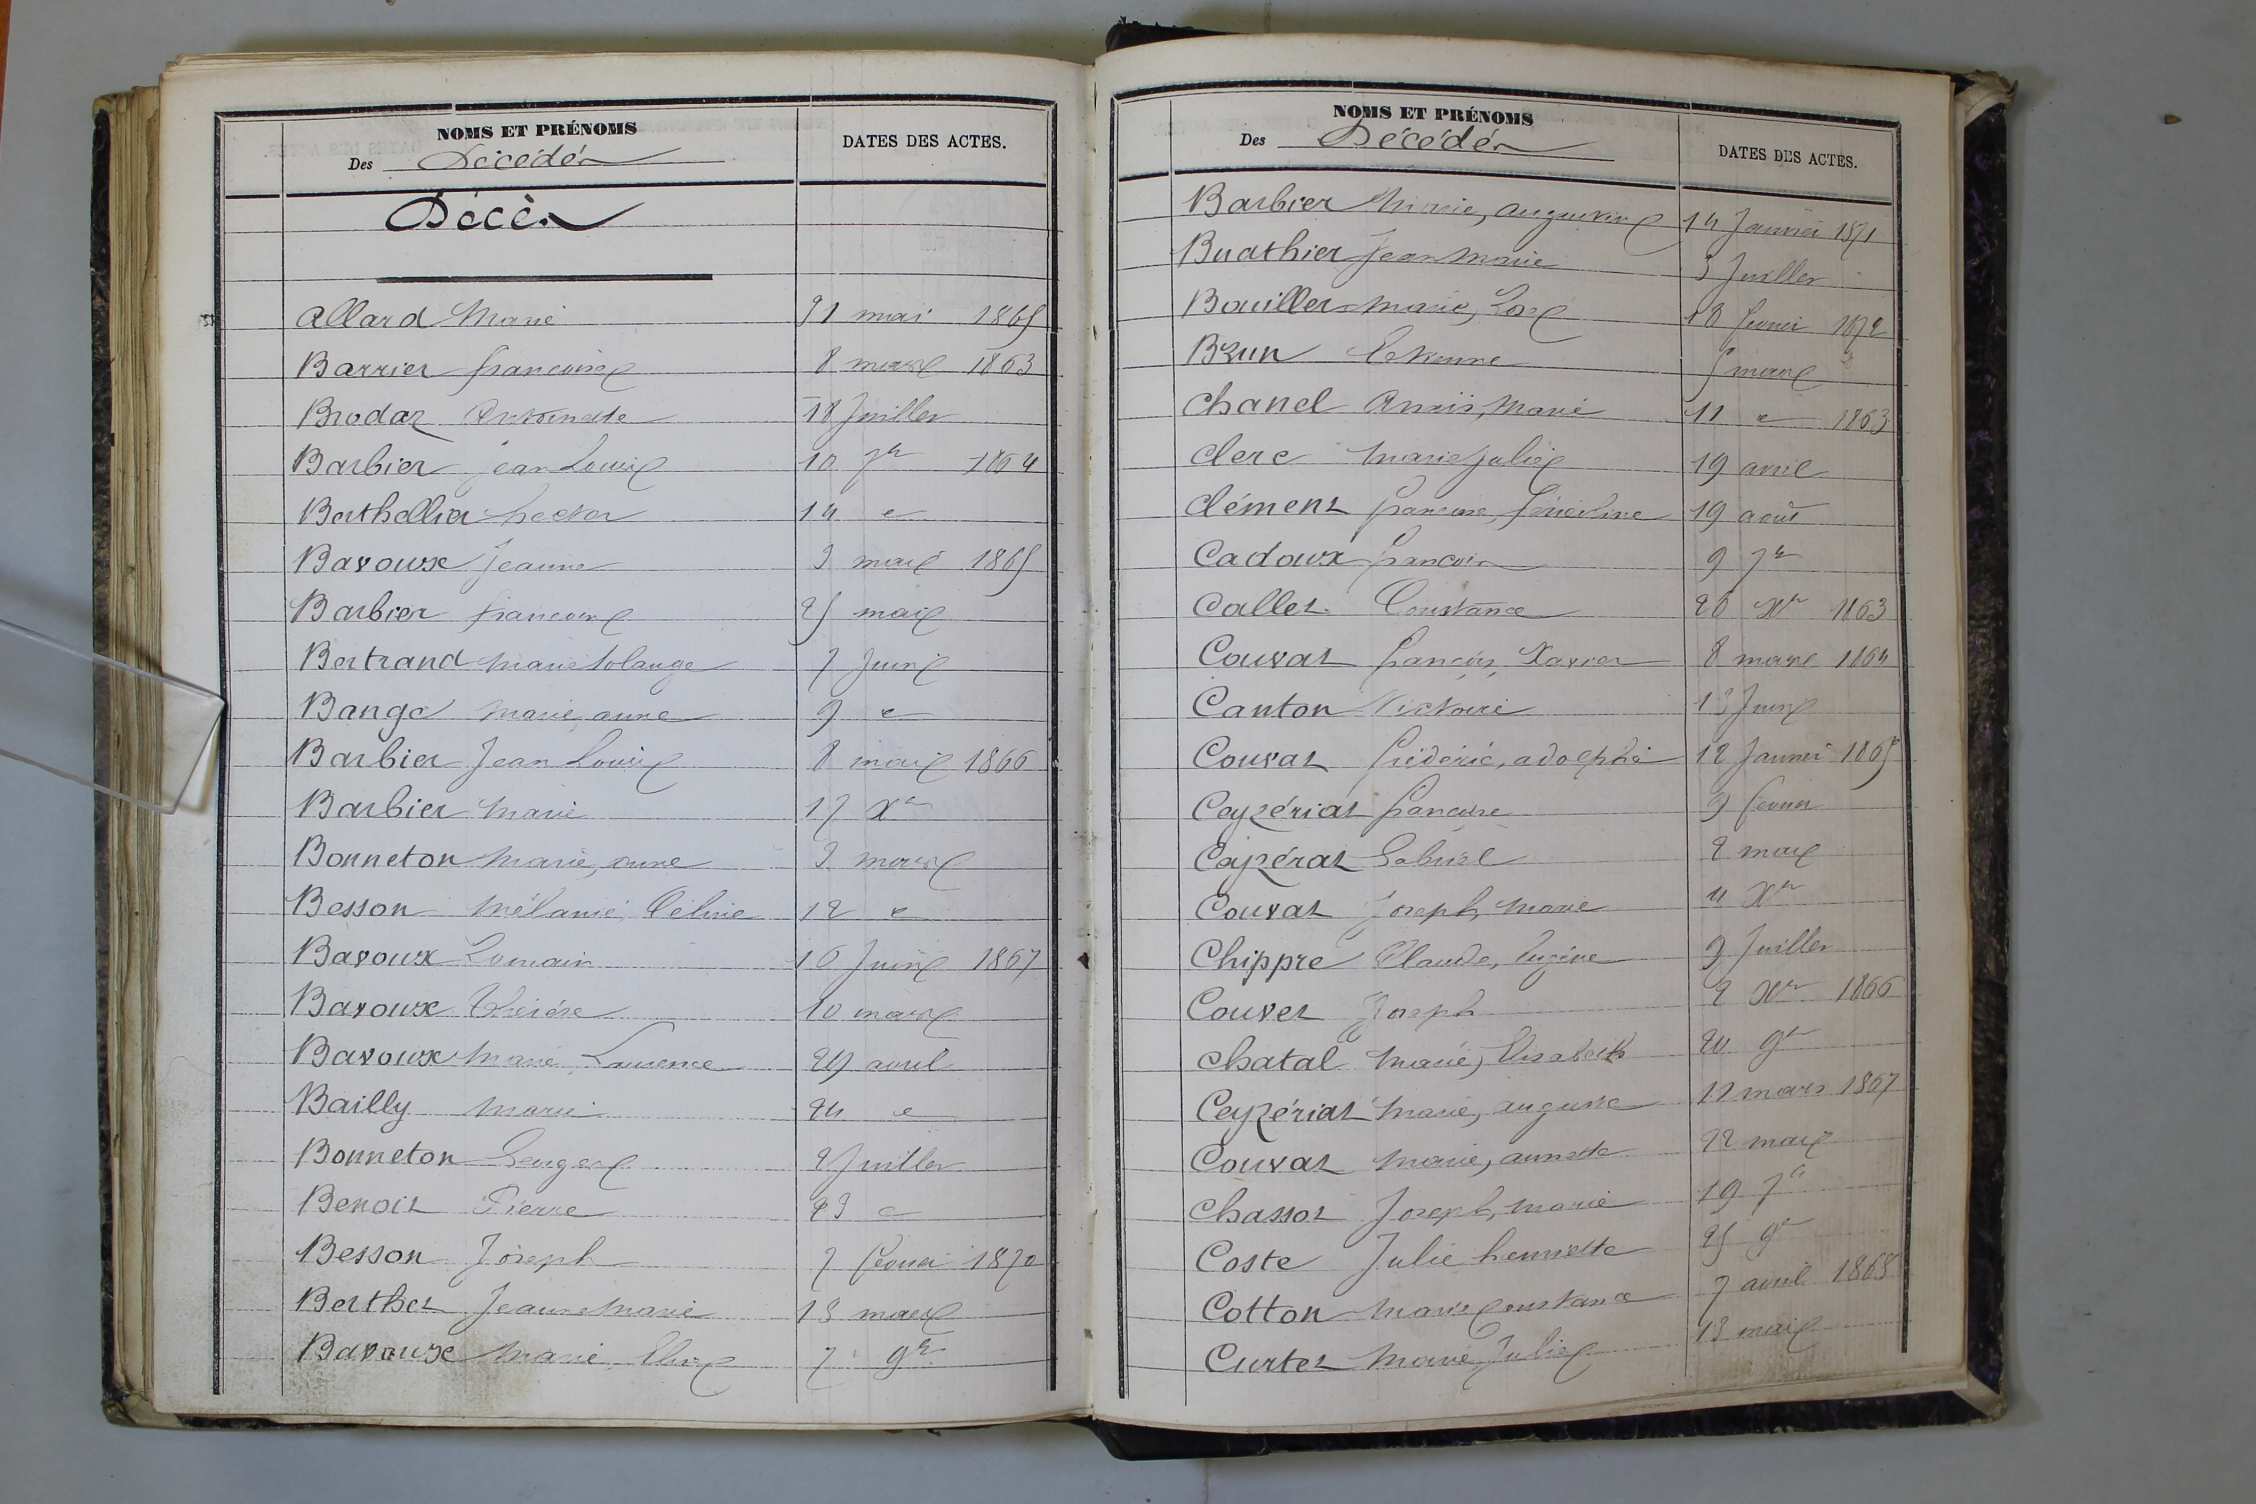 NOMS ET PRÉNOMS
Des Décédés
DATES DES ACTES.
Décès
Allard Marie 21 mai 1865
Barrier françoise 8 mars 1863
Brodaz Antoinette 18 Juillet
Barbier jean Louis 10 7re 1864
Berthellier hector 14 e
Bavoux Jeanne 3 mai 1865
Barbier françoise 25 mai
Bertrand Marie Solange 7 Juin
Bange Marie, anne 9 e
Barbier Jean Louis 8 mai 1866
Barbier Marie 17 Xre
Bonneton Marie, anne 3 mars
Besson Mélanie, Céline 12 e
Bavoux Romain 16 Juin 1867
Bavoux Thérèse 10 mars
Bavoux Marie, Laurence 29 avril
Bailly Marie 24 e
Bonneton 2 Juillet
Benoit Pierre 23 e
Besson Joseph 7 février 1870
Berthet Jeanne Marie 13 mars
Bavoux Marie, 7 9re
NOMS ET PRÉNOMS
Des Décédés
DATES DES ACTES.
Barbier Marie, augustine 14 Janvier 1871
Buathier Jean Marie 3 Juillet
Bouillet Marie, 18 février 1872
Brun Etienne 5 mars
Chanel Anaïs, Marie 11 e 1863
Clerc Marie Julie 19 avril
Clément françoise, 19 août
Cadoux françois 9 7re
Callet Constance 26 Xre 1863
Couvat françois, Xavier 8 mars 1864
Canton Victoire 13 Juin
Couvat fréderic, adolphe 12 Janvier 1865
Ceyzériat françoise 9 février
Ceyzérat Gabriel 2 mai
Couvat Joseph, Marie 4 Xre
Chippre Claude, Eugène 9 Juillet
Couvet Joseph 2 Xre 1866
Chatal Marie, Elisabeth 24 9re
Ceyzériat Marie, augusta 12 mars 1867
Couvat Marie, annette 22 mai
Chassot Joseph, Marie 19 7re
Coste Julie henriette 25 9re
Cotton Marie Constance 7 avril 1868
Curtet Marie Julie 13 mai